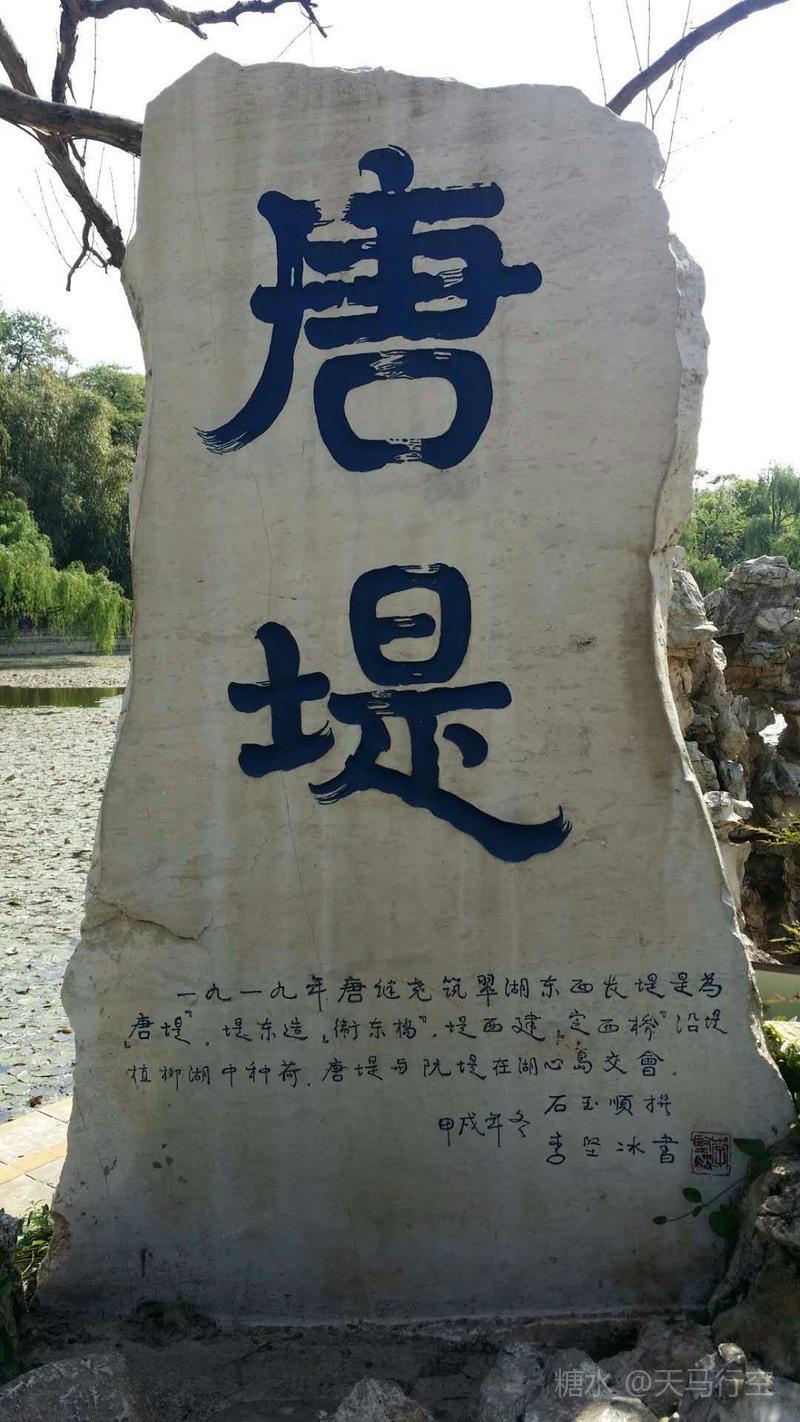 唐
堤
一九一九年唐继尧筑翠湖东西长堤是為
"唐堤"。堤东造"衛东橋"。堤西建"定西橋"沿堤
植柳湖中种荷。唐堤与阮堤在湖心島交會。
石玉順撰
甲戌年冬
李坚冰書
糖水 @天马行空